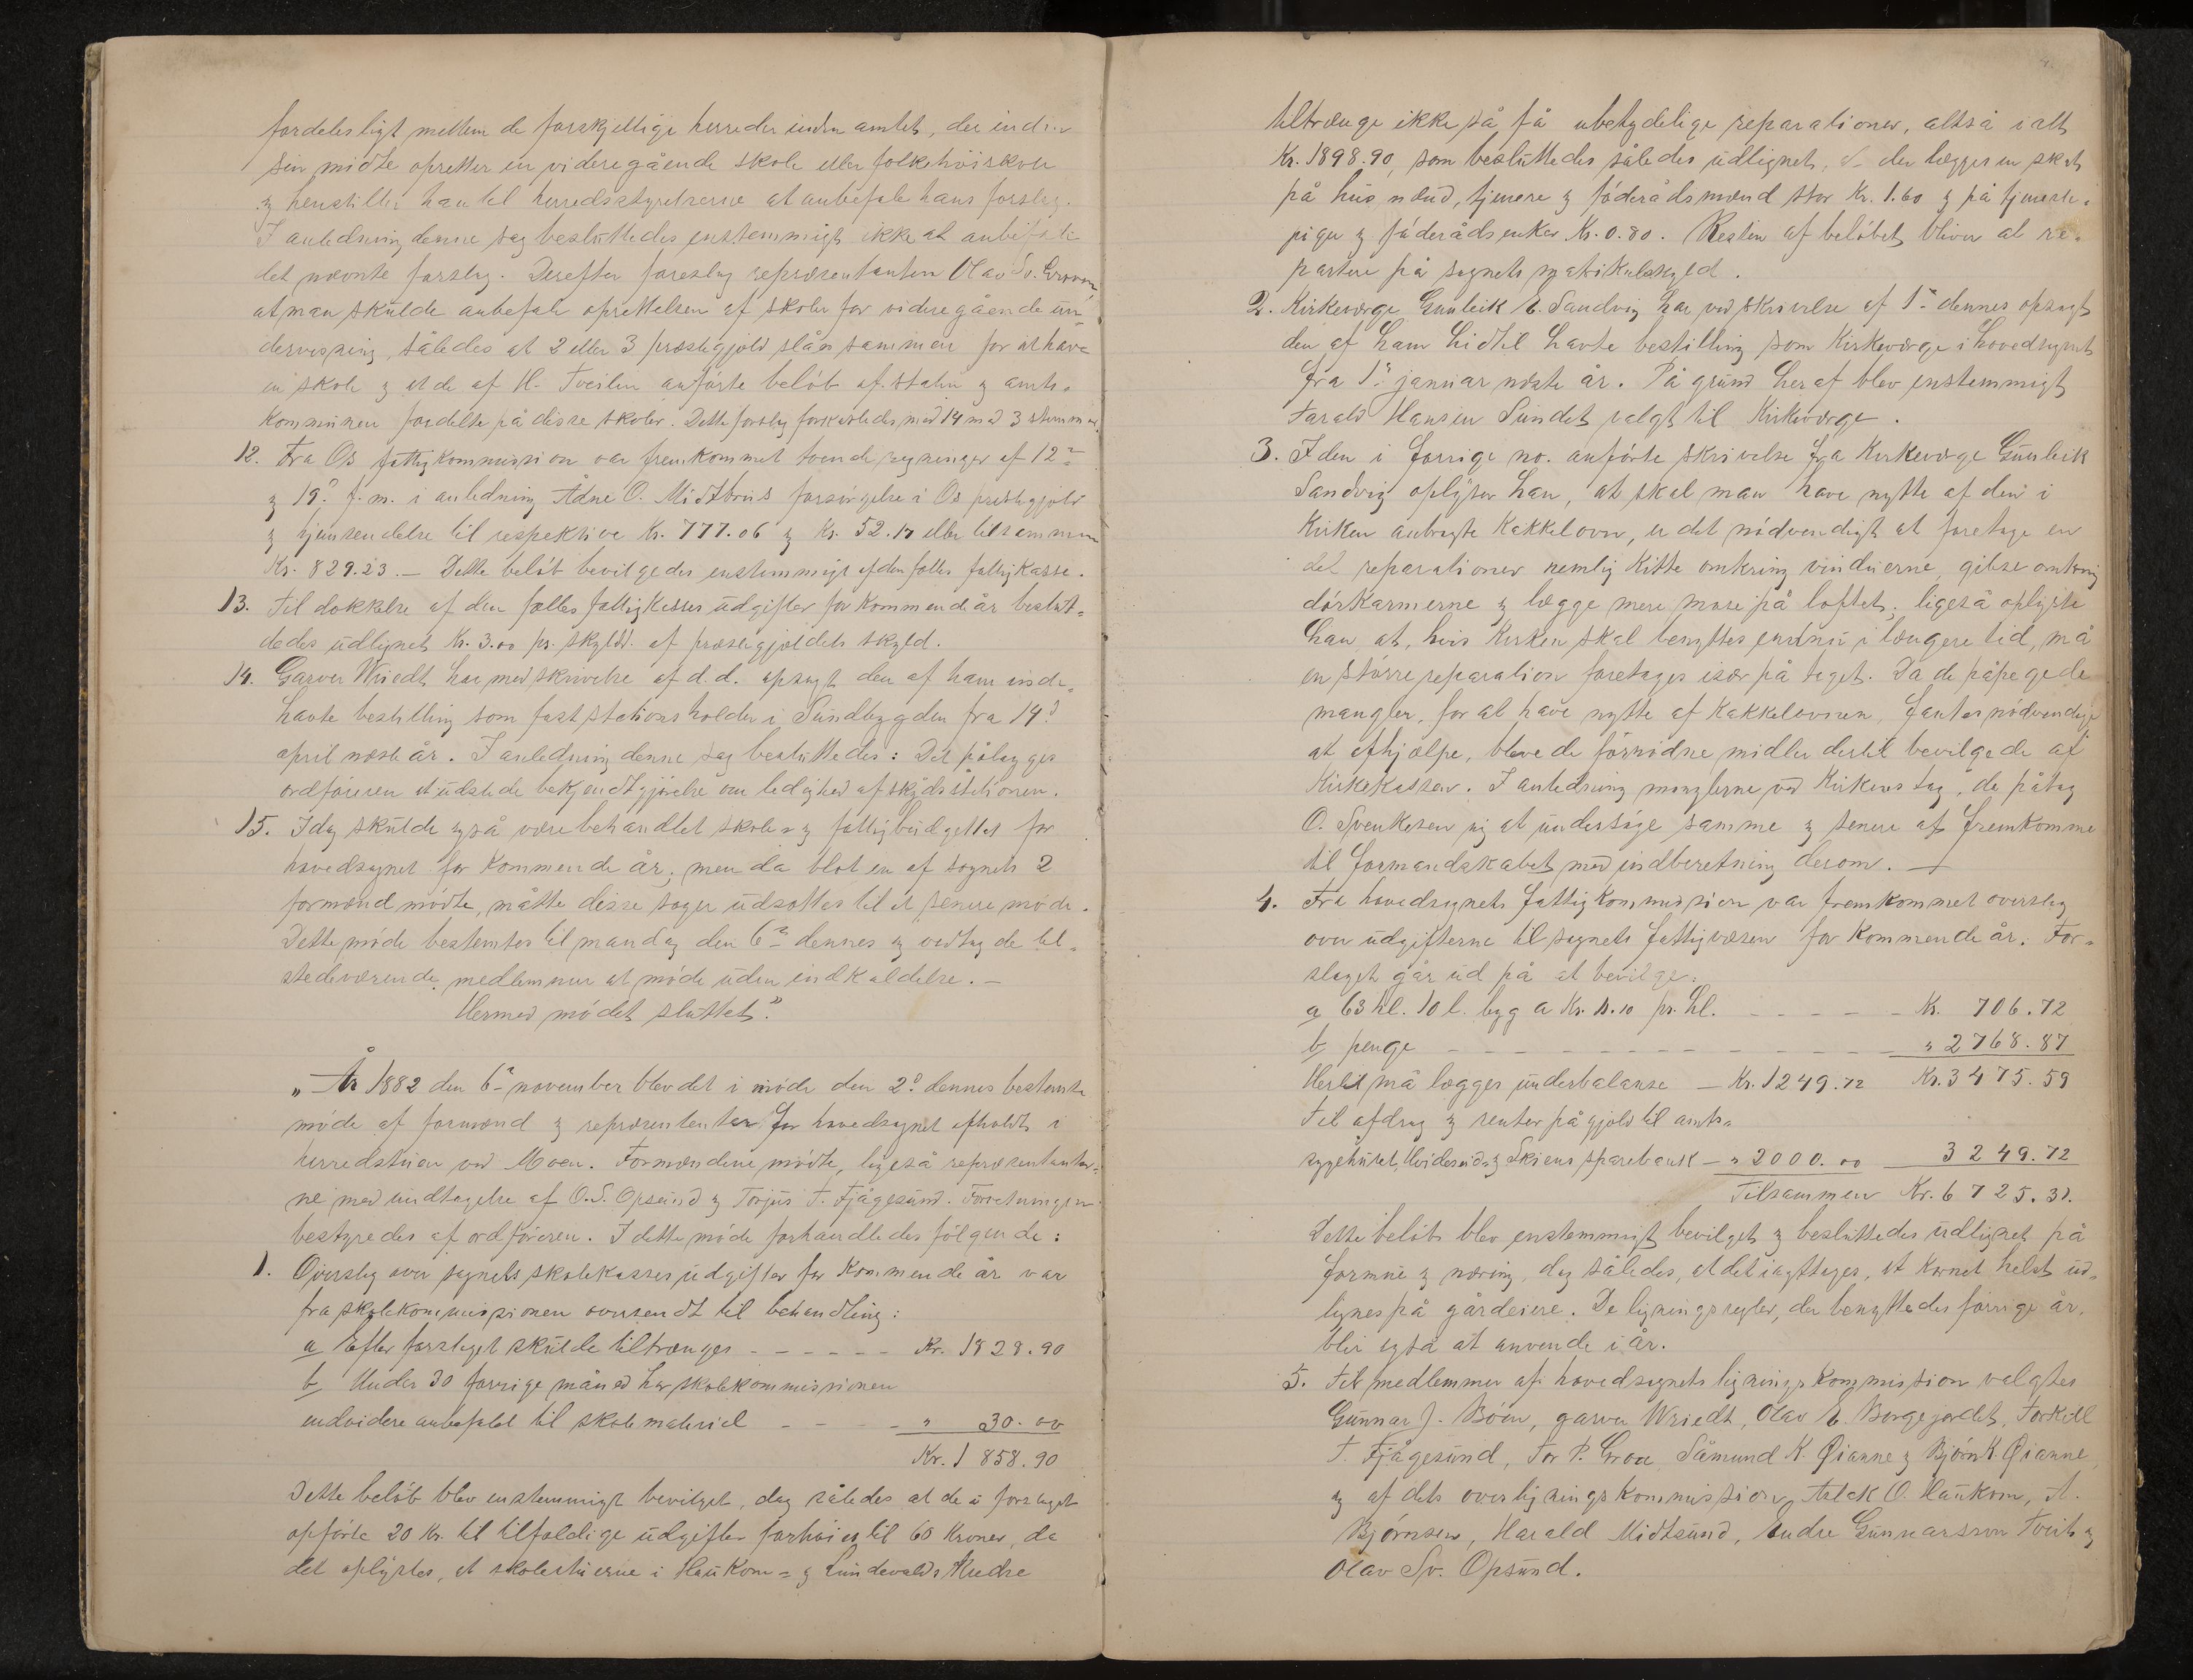 fordelesligt mellem de forskjellige herreder inden amtet, der inden
sin midte opretter en videregående skole eller folkehøiskole
og henstiller han til herredsstyrelserne at anbefale hans forslag.
I anledning denne sag besluttedes enstemmigt ikke at anbefale
det nævnte forslag. Derefter foreslog repræsentanten Olav Sv.
at man skulde anbefale oprettelsen af skoler for videregående un-
dervisning, således at 2 eller 3 præstegjæld slåes sammen for at have
en skole og at de af H. Tveiten anførte beløb af staten og amts-
kommunen fordeltes på disse skoler. Dette forslag forkastedes med 14 mod 3 stemmer.
12. Fra Os fattigkommission var fremkommet tvende regninger af 12te
og 19de f. m. i anledning Ådne O. Midtbøs forsørgelse i Os præstegjæld
og hjemsendelse til respektive Kr. 777.06 og Kr. 52.17 eller tilsammen
Kr. 829.23. — Dette beløb bevilgedes enstemmigt af den fælles fattigkasse.
13. Til dækkelse af den fælles fattigkasses udgifter for kommende år beslut-
tedes udlignet Kr. 3.00 pr. skyldd. af præstegjældets skyld.
14. Garver Wriedt har med skrivelse af d.d. opsagt den af ham inde-
havte bestilling som fast stationsholder i Sundbygden fra 14de
april næste år. I anledning denne sag besluttedes: Det pålægges
ordføreren at udstede bekjendtgjørelse om ledighed af skydsstationen.
15. Idag skulde også være behandlet skole- og fattigbudgettet for
hovedsognet for kommende år, men da blot en af sognets 2
formænd mødte, måtte disse sager udsættes til et senere møde.
Dette møde bestemtes til mandag den 6te dennes og vedtog de til-
stedeværende medlemmer at møde uden indkaldelse. —
Hermed mødet sluttet."
"År 1882 den 6te november blev det i møde den 2den dennes bestemte
møde af formænd og repræsentanter for hovedsognet afholdt i
herredstuen ved Moen. Formændene mødte, ligeså repræsentanter-
ne med undtagelse af O. S. Opsund og Torjus T. Fjågesund. Forretningen
bestyredes af ordføreren. I dette møde forhandledes følgende:
1. Overslag over sognets skolekasses udgifter for kommende år var
fra skolekommissionen oversendt til behandling:
a Efter forslaget skulde tiltrænges - - - - - - Kr. 1828.90
b Under 30 forrige måned har skolekommissionen
endvidere anbefalet til skolemateriel - - - - " 30.00
Kr. 1858.90
Dette beløb blev enstemmigt bevilget, dog således at de i forslaget
opførte 20 Kr. til tilfældige udgifter forhøies til 60 Kroner, da
det oplystes, at skolestuerne i Haukom- og Lundevalds
tiltrænge ikke så få ubetydelige reparationer, altså ialt
Kr. 1898.90, som besluttedes således udlignet, der lægges en skat
på husmænd, tjenere og føderådsmænd stor Kr. 1.60 og på tjeneste-
piger og føderådsenker Kr. 0.80. Resten af beløbet bliver at re-
partere på sognets matrikulskyld.
2. Kirkeværge Gunleik E. Sandvig har ved skrivelse af 1ste dennes opsagt
den af ham hidtil havte bestilling som Kirkeværge i hovedsognet
fra 1ste januar næste år. På grund heraf blev enstemmigt
Tarald Hansen Sundet valgt til Kirkeværge.
3. I den i forrige no. anførte skrivelse fra Kirkeværge Gunleik
Sandvig oplyser han, at skal man have nytte af den i
Kirken anbragte Kakkelovn, er det nødvendigt at foretage en
del reparationer nemlig kitte omkring vinduerne, gibse omkring
dørkarmerne og lægge mere mose på loftet; ligeså oplyste
han at, hvis Kirken skal benyttes endnu i længere tid, må
en større reparation foretages især på taget. Da de påpegede
mangler, for at have nytte af Kakkelovnen, fantes nødvendige
at afhjælpe, blev de fornødne midler dertil bevilgede af
Kirkekassen. I anledning manglerne ved Kirkens tag, de påtog
O. Svenkesen sig at undersøge samme og senere at fremkomme
til formandskabet med indberetning derom. —
4. Fra hovedsognets fattigkommission var fremkommet overslag
over udgifterne til sognets fattigvæsen for kommende år. For-
slaget går ud på at bevilge:
a 63 hl. 10 l. byg a Kr. 11.10 pr. hl. - - - - - Kr. 706.72
b penge - - - - - - - - - - - - - " 2768.87
Hertil må lægges underbalanse — Kr. 1249.72 Kr. 3475.59
Til afdrag og renter på gjæld til amts-
sygehuset, Hvideseids og Skiens sparebank — " 2000.00 3249.72
Tilsammen Kr. 6725.31.
Dette beløb blev enstemmigt bevilget og besluttedes udlignet på
formue og næring, dog således, at det iagttages, at kornet helst ud-
lignes på gårdeiere. De ligningsregler, der benyttedes forrige år,
blir også at anvende i år.
5. Til medlemmer af hovedsognets ligningskommission valgtes
Gunnar J. Bøen, garver Wriedt, Olav E. Borgejordet, Torkill
T. Fjågesund, Tor P. Groa, Såmund K. Øianne og Bjørn K. Øianne,
og af dets overligningskommission Aslak O. Haukom, A.
Bjørnsen, Harald Midtsund, Endre Gunnarsson Tveit og
Olav Sv. Opsund.